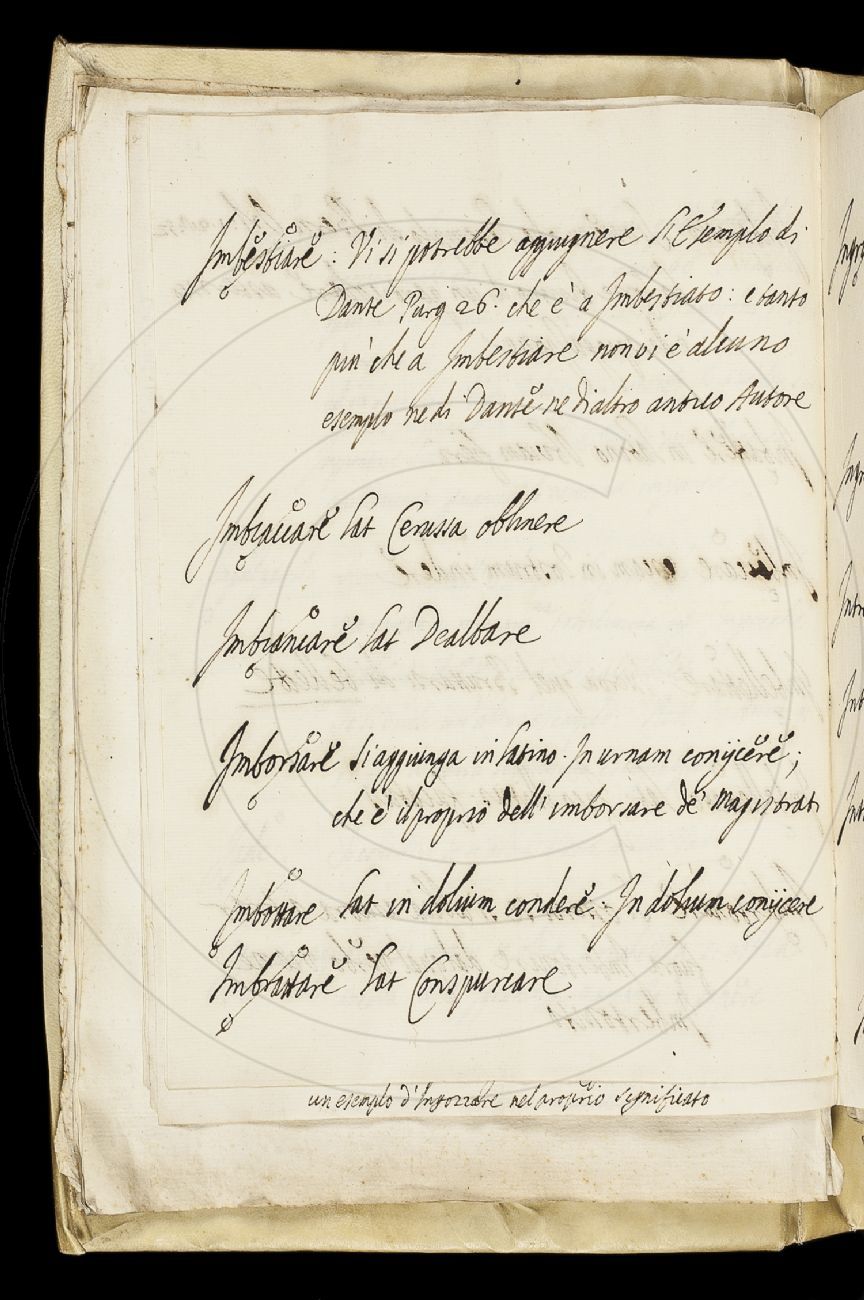 Imbestiare: Vi si potrebbe aggiugnere l'Esemplo di
Dante Purg 26. che è a Imbestiato: e tanto
più che a Imbestiare non vi è alcuno
esemplo ne di Dante ne di altro antico Autore
Imbiaccare lat Cerussa oblinere
Imbiancare lat Dealbare
Imborsare si aggiunga in latino. In urnam conijcere;
che è il proprio dell'imborsare de' Magistrati
Imbottare lat in dolium condere. In dolium conijcere
Imbrattare lat Conspurcare
un esemplo d'Ingozzare nel proprio significato